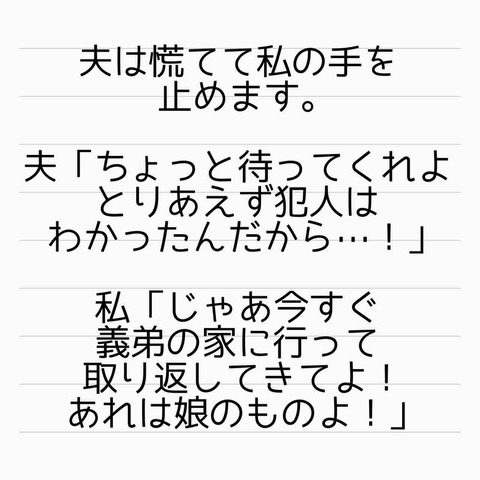 夫は慌てて私の手を
止めます。
夫「ちょっと待ってくれよ
とりあえず犯人は
わかったんだから…！」
私「じゃあ今すぐ
義弟の家に行って
取り返してきてよ！
あれは娘のものよ！」